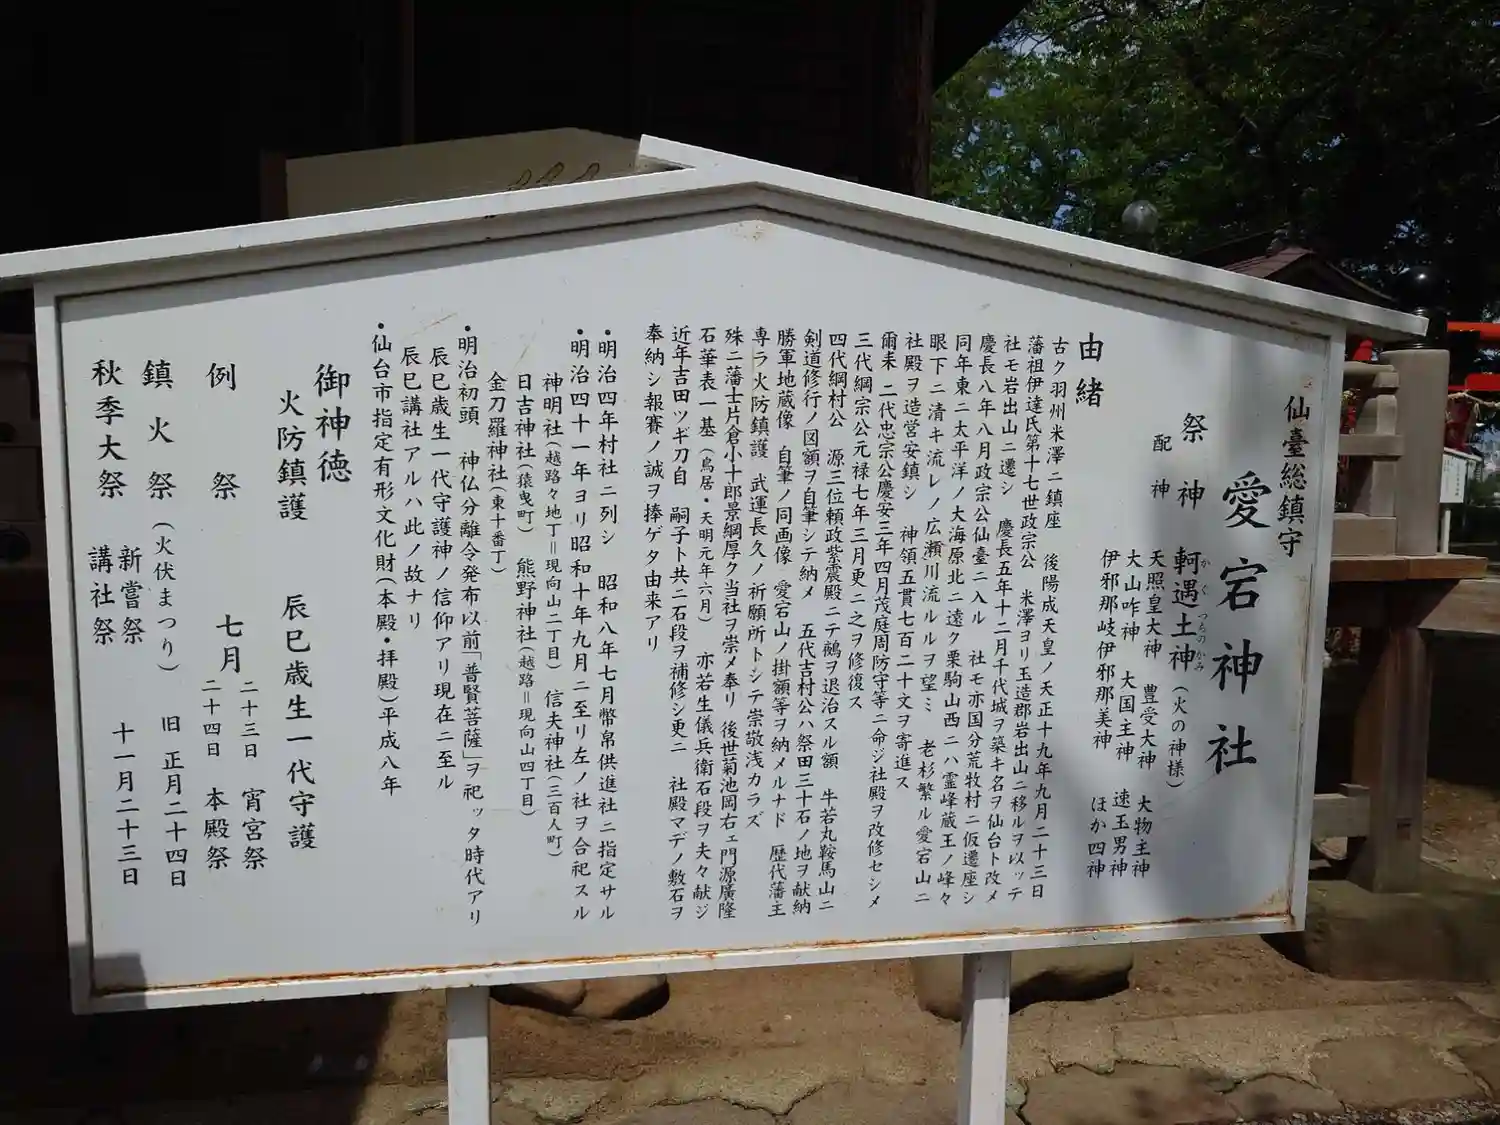 仙臺総鎮守
愛宕神社
祭神 軻遇土神(火の神様)
かぐつちのかみ
配神 天照皇大神 豊受大神 大物主神
大山咋神 大国主神 速玉男神
伊邪那岐伊邪那美神 ほか四神
由緒
古ク羽州米澤ニ鎮座 後陽成天皇ノ天正十九年九月二十三日
藩祖伊達氏第十七世政宗公 米澤ヨリ玉造郡岩出山ニ移ルヲ以ッテ
社モ岩出山ニ遷シ 慶長五年十二月千代城ヲ築キ名ヲ仙台ト改メ
慶長八年八月政宗公仙臺ニ入ル 社モ亦国分荒牧村ニ仮遷座シ
同年東ニ太平洋ノ大海原北ニ遠ク栗駒山西ニハ霊峰蔵王ノ峰々
眼下ニ清キ流レノ広瀬川流ルルヲ望ミ 老杉繁ル愛宕山ニ
社殿ヲ造営安鎮シ 神領五貫七百二十文ヲ寄進ス
爾来 二代忠宗公慶安三年四月茂庭周防守等ニ命ジ社殿ヲ改修セシメ
三代綱宗公元禄七年三月更ニ之ヲ修復ス
四代綱村公 源三位頼政紫震殿ニテ鵺ヲ退治スル額 牛若丸鞍馬山ニ
剣道修行ノ図額ヲ自筆シテ納メ 五代吉村公ハ祭田三十石ノ地ヲ献納
勝軍地蔵像 自筆ノ同画像 愛宕山ノ掛額等ヲ納メルナド 歴代藩主
専ラ火防鎮護 武運長久ノ祈願所トシテ崇敬浅カラズ
殊ニ藩士片倉小十郎景綱厚ク当社ヲ崇メ奉リ 後世菊池岡右ェ門源廣隆
石華表一基(鳥居・天明元年六月) 亦若生儀兵衛石段ヲ夫々献ジ
近年吉田ツギ刀自 嗣子ト共ニ石段ヲ補修シ更ニ 社殿マデノ敷石ヲ
奉納シ報賽ノ誠ヲ捧ゲタ由来アリ
・明治四年村社ニ列シ 昭和八年七月幣帛供進社ニ指定サル
・明治四十一年ヨリ昭和十年九月ニ至リ左ノ社ヲ合祀スル
神明社(越路々地丁=現向山二丁目) 信夫神社(三百人町)
日吉神社(猿曳町) 熊野神社(越路=現向山四丁目)
金刀羅神社(東十番丁)
・明治初頭 神仏分離令発布以前「普賢菩薩」ヲ祀ッタ時代アリ
辰巳歳生一代守護神ノ信仰アリ現在ニ至ル
辰巳講社アルハ此ノ故ナリ
・仙台市指定有形文化財(本殿・拝殿)平成八年
御神徳
火防鎮護 辰巳歳生一代守護
例祭 七月 二十三日 宵宮祭
二十四日 本殿祭
鎮火祭(火伏まつり) 旧 正月二十四日
秋季大祭 新嘗祭
講社祭
十一月二十三日